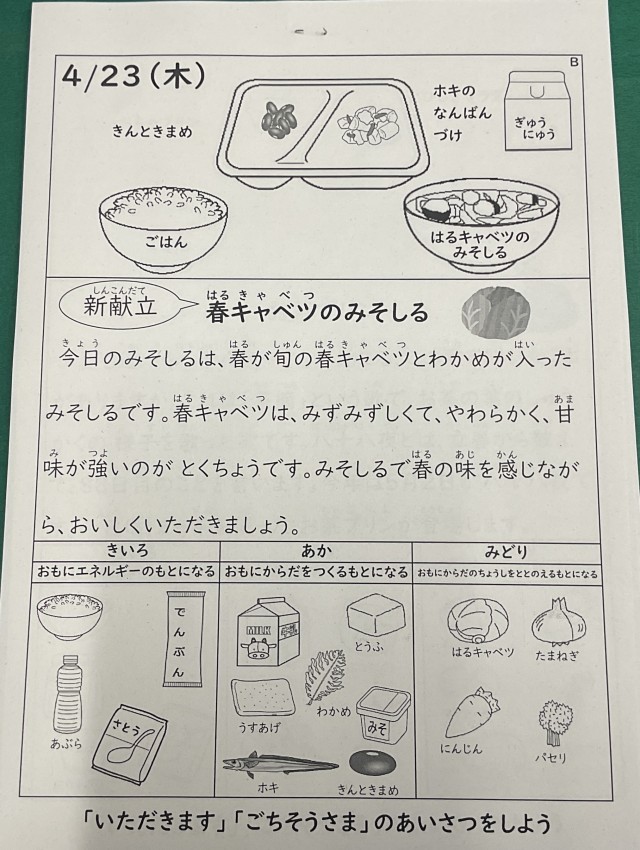 B
4/23(木)
きんときまめ
ホキの
なんばん
づけ
ぎゅう
にゅう
ごはん
はるキャベツの
みそしる
しんこんだて
新献立
はるきゃべつ
春キャベツのみそしる
きょう はる しゅん はるきゃべつ はい
今日のみそしるは、春が旬の春キャベツとわかめが入った
はるきゃべつ あま
みそしるです。春キャベツは、みずみずしくて、やわらかく、甘
み つよ はる あじ かん
味が強いのが とくちょうです。みそしるで春の味を感じなが
ら、おいしくいただきましょう。
きいろ あか みどり
おもにエネルギーのもとになる おもにからだをつくるもとになる おもにからだのちょうしをととのえるもとになる
でんぷん
あぶら
さとう
MILK
とうふ
わかめ
うすあげ
みそ
ホキ
きんときまめ
はるキャベツ
たまねぎ
にんじん
パセリ
「いただきます」「ごちそうさま」のあいさつをしよう